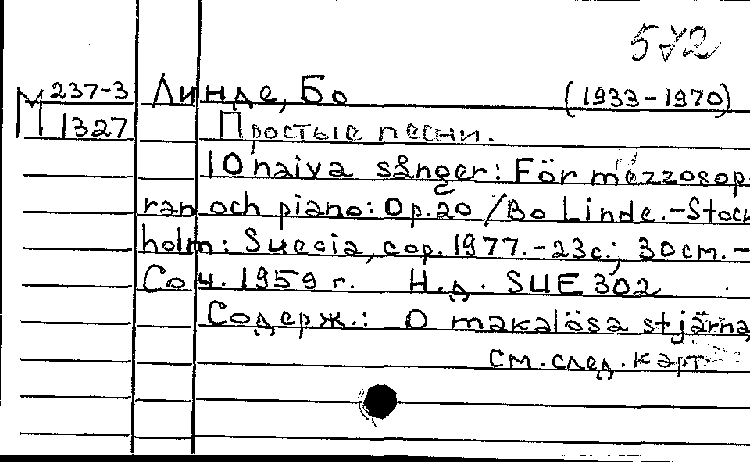 572
М 237-3 Линде, Бо (1933-1970)
1327 Простые песни.
10 naiva sånger: För mezzosop-
ran och piano: Op.20 /Bo Linde.-Stock
holm: Suecia, cop. 1977.-23с.; 30см.-
Соч. 1959 г. Н.д. SUE 302
Содерж.: O makalösa stjärna,
см.след.карт